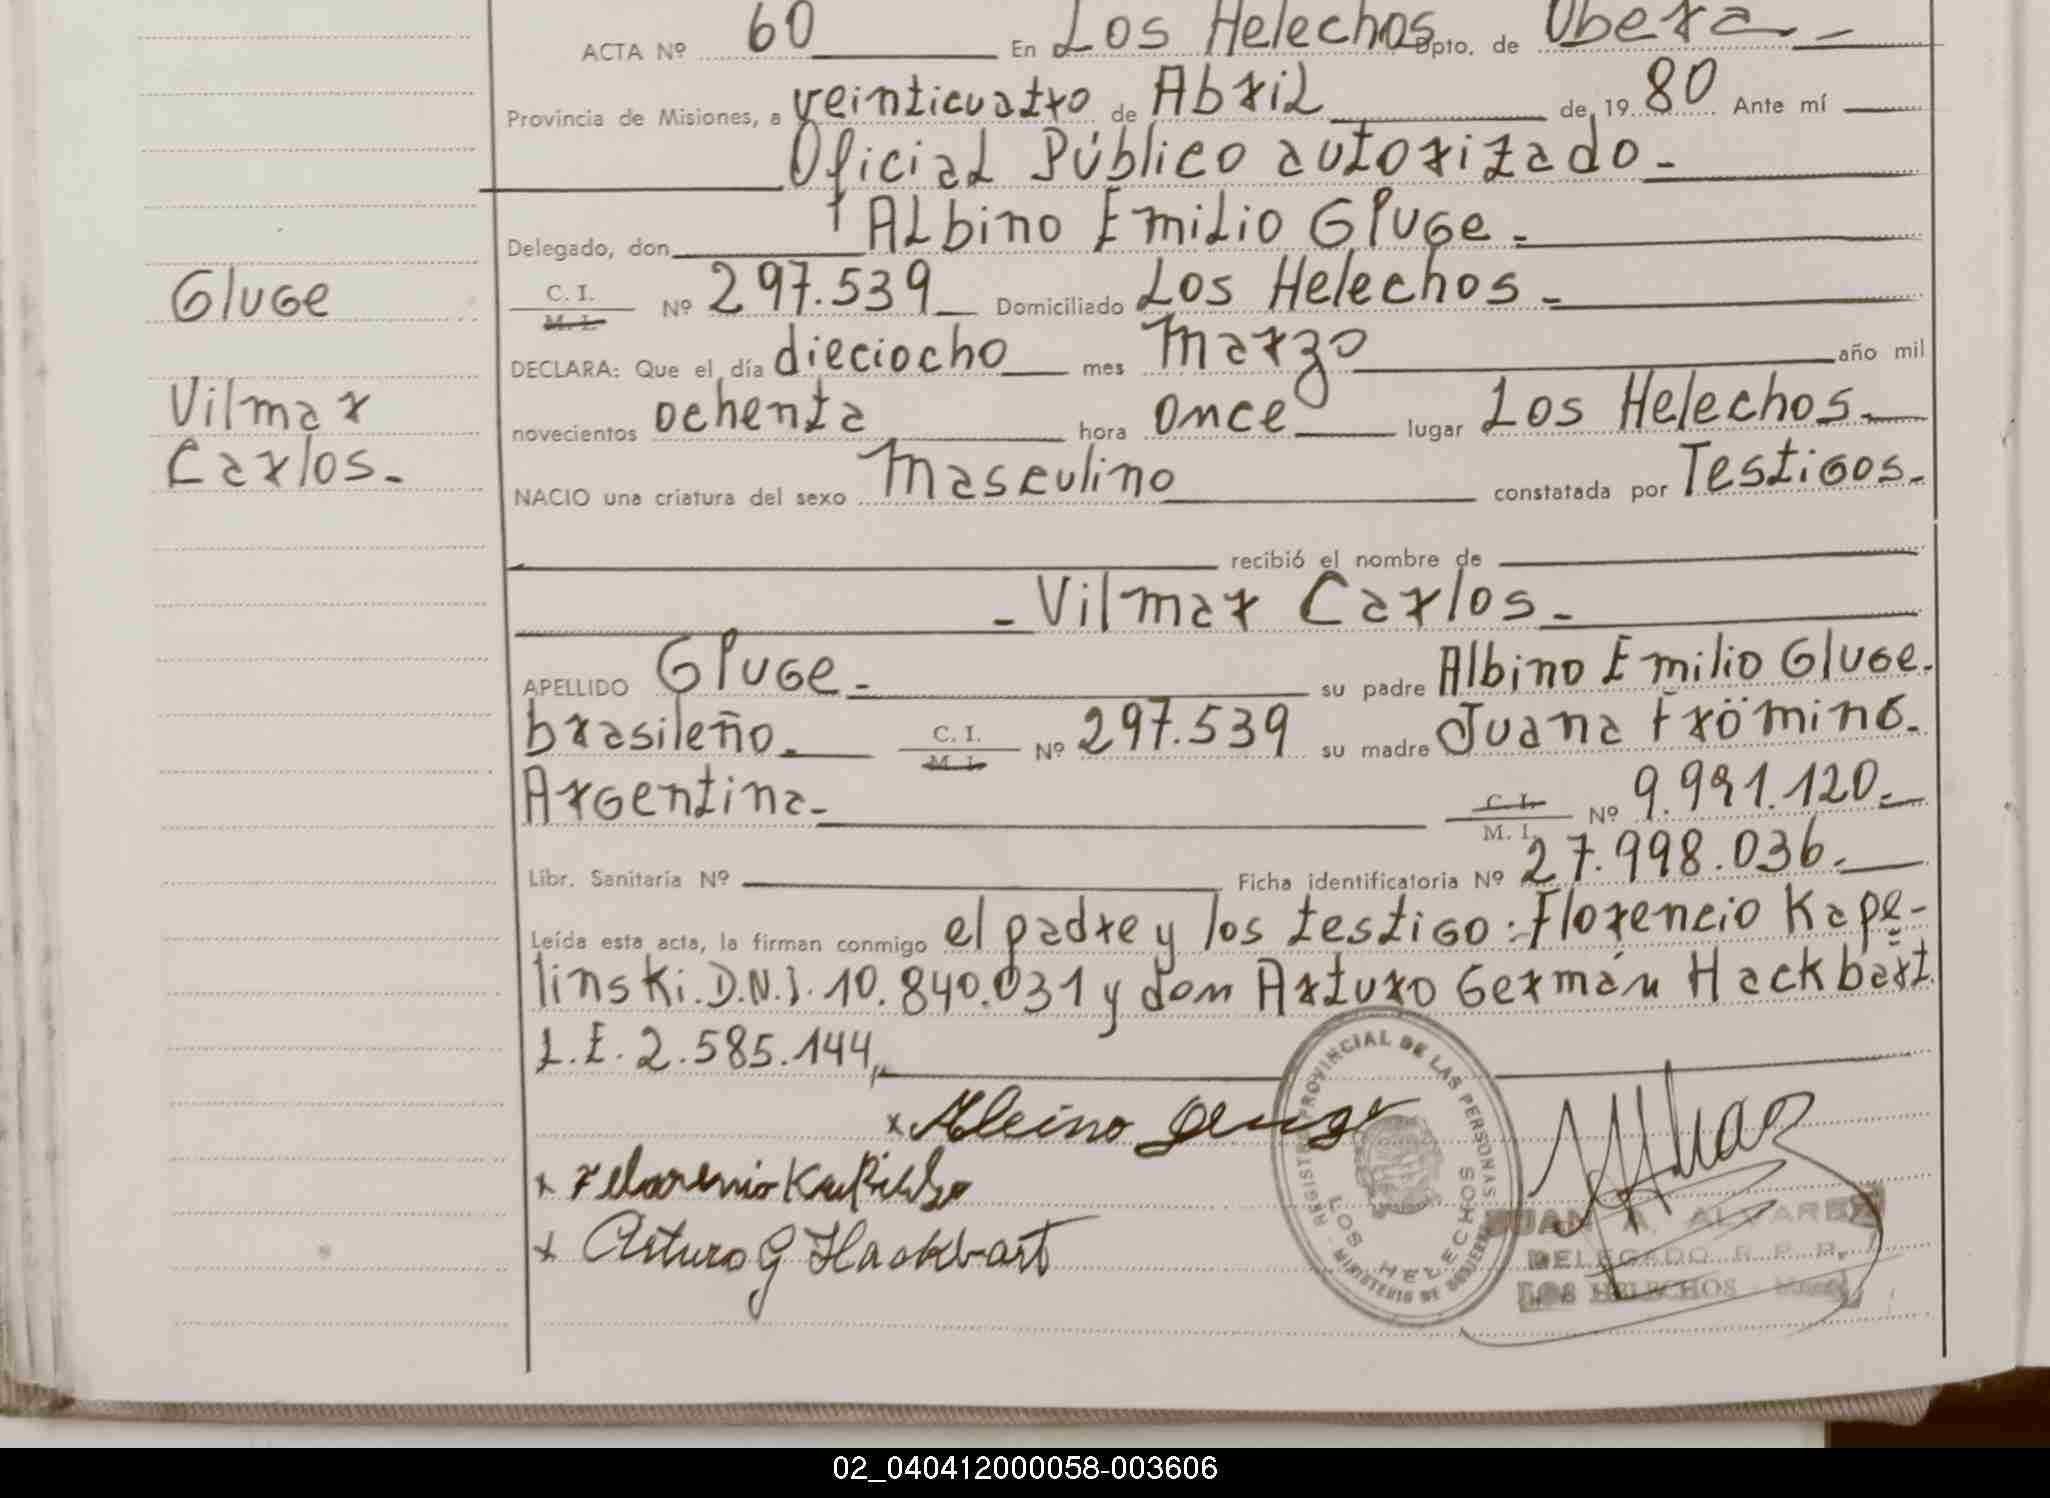 ACTA Nº 60 En Los Helechos Dpto. de Obera
Provincia de Misiones, a veinticuatro de Abril de 1980 Ante mí
Oficial Público autorizado.
Delegado, don Albino Emilio Gluge.
Gluge
C. I. M. I. Nº 297.539 Domiciliado Los Helechos.
DECLARA: Que el día dieciocho mes Marzo año mil
Vilmar
novecientos ochenta hora once lugar Los Helechos.
Carlos.
NACIO una criatura del sexo Masculino constatada por Testigos.
recibió el nombre de
- Vilmar Carlos.
APELLIDO Gluge. su padre Albino Emilio Gluge.
brasileño. C. I. M. I. Nº 297.539 su madre Juana Fröming.
Argentina. C. I. M. I. Nº 9.991.120.
Libr. Sanitaria Nº Ficha identificatoria Nº 27.998.036.
Leída esta acta, la firman conmigo el padre y los testigo: Florencio Kape-
linski. D.N.I. 10.840.031 y don Arturo Germán Hackbart
L.E. 2.585.144,
x Albino Gluge
x
x Arturo G Hackbart
REGISTRO PROVINCIAL DE LAS PERSONAS
LOS HELECHOS
MINISTERIO DE GOBIERNO
JUAN A. ALVAREZ
DELEGADO R. P. P.
LOS HELECHOS - Mnes.
02_040412000058-003606